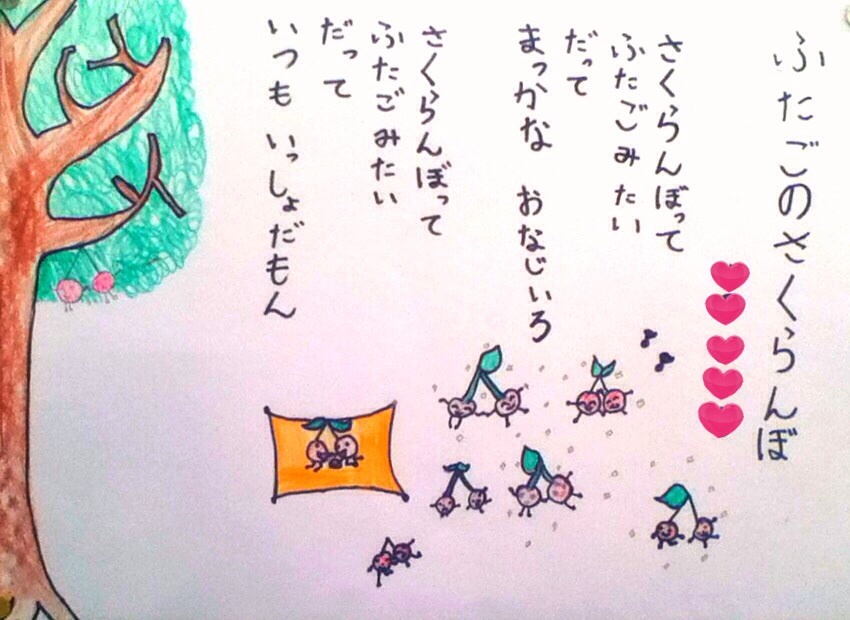 ふたごのさくらんぼ
さくらんぼって
ふたごみたい
だって
まっかな おなじいろ
さくらんぼって
ふたごみたい
だって
いつも いっしょだもん